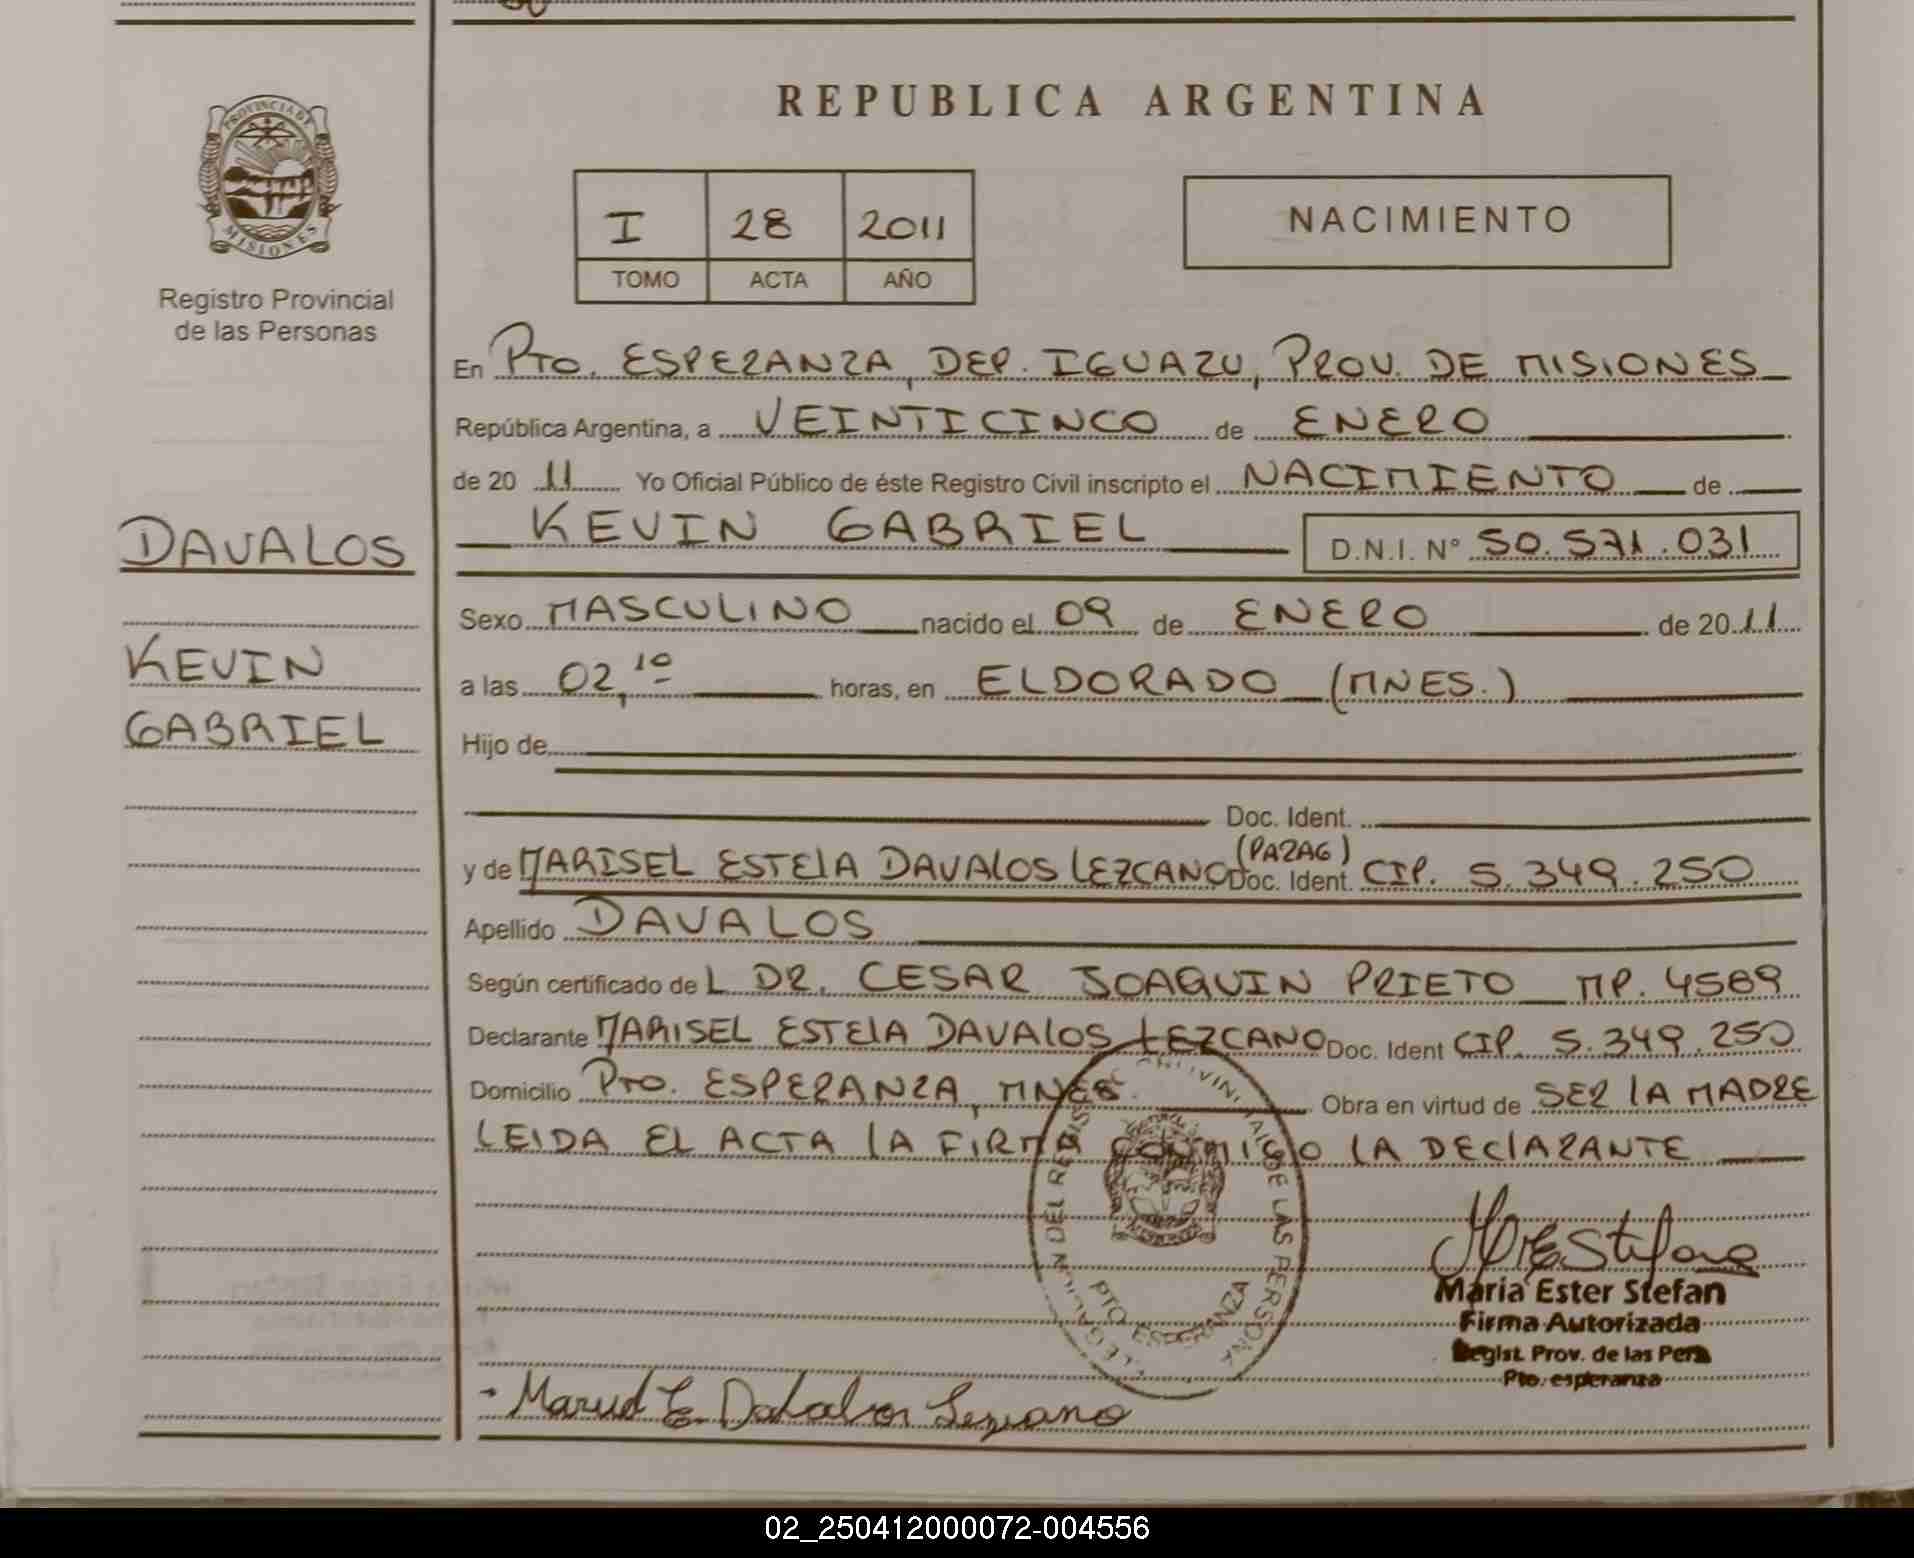 REPUBLICA ARGENTINA
PROVINCIA DE
MISIONES
Registro Provincial
de las Personas
I 28 2011
TOMO ACTA AÑO
NACIMIENTO
En PTO. ESPERANZA, DEP. IGUAZU, PROV. DE MISIONES
República Argentina, a VEINTICINCO de ENERO
de 20 11 Yo Oficial Público de éste Registro Civil inscripto el NACIMIENTO de
KEVIN GABRIEL D.N.I. N° 50.571.031
DAVALOS
KEVIN
GABRIEL
Sexo MASCULINO nacido el 09 de ENERO de 20 11
a las 02,10 horas, en ELDORADO (MNES.)
Hijo de
Doc. Ident.
y de MARISEL ESTELA DAVALOS LEZCANO Doc. Ident. (PARAG) CIP. 5.349.250
Apellido DAVALOS
Según certificado de L DR. CESAR JOAQUIN PRIETO MP. 4589
Declarante MARISEL ESTELA DAVALOS LEZCANO Doc. Ident CIP. 5.349.250
Domicilio PTO. ESPERANZA, MNES. Obra en virtud de SER LA MADRE
LEIDA EL ACTA LA FIRMA CONMIGO LA DECLARANTE
PTO ESPERANZA
María Ester Stefan
Firma Autorizada
Regist. Prov. de las Pers
Pto. esperanza
02_250412000072-004556